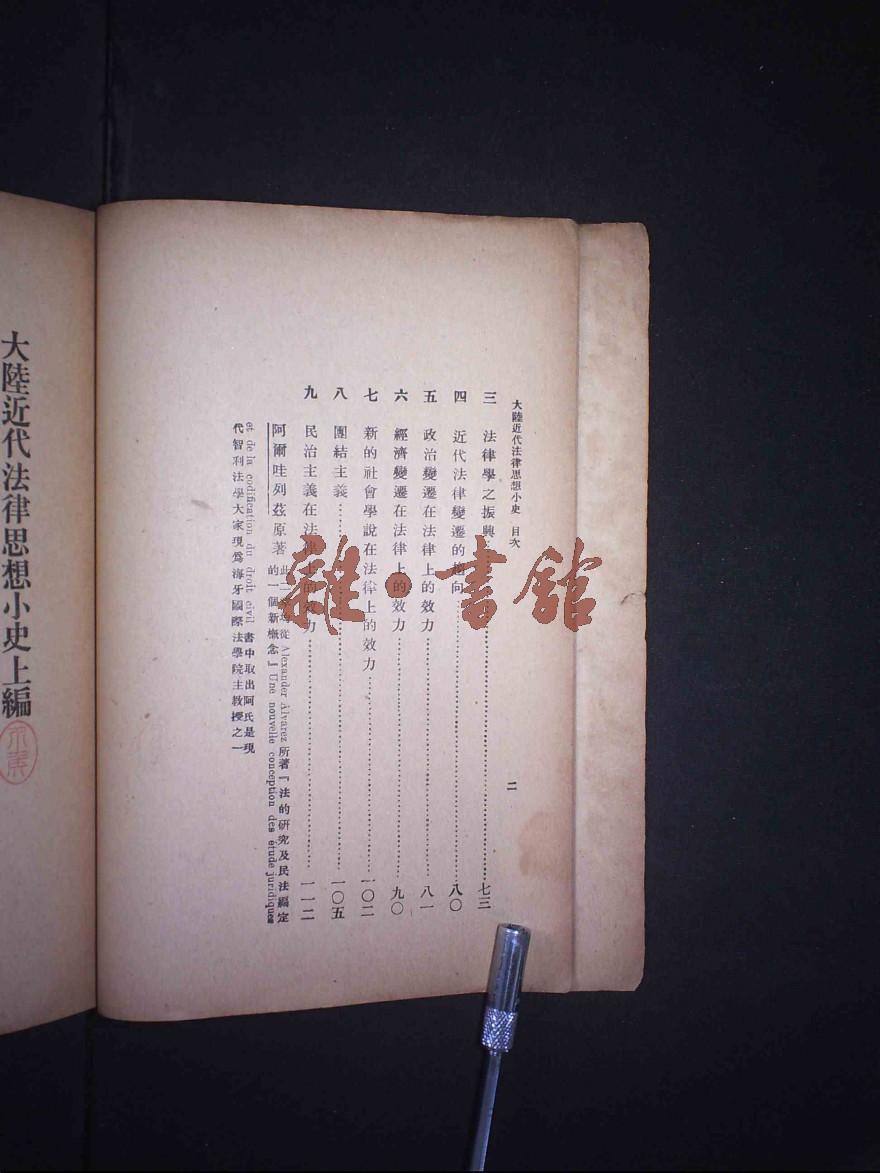 大陸近代法律思想小史 目次
二
三 法律學之振興……七三
四 近代法律變遷的趨向……八〇
五 政治變遷在法律上的效力……八一
六 經濟變遷在法律上的效力……九〇
七 新的社會學說在法律上的效力……一〇二
八 團結主義……一〇五
九 民治主義在法律上的效力……一一二
阿爾哇列茲原著
此二章均從 Alexander Alvarez 所著『法的研究及民法編定
的一個新概念』Une nouvelle conception des étude juridiques
et de la codification du droit civil 書中取出阿氏是現
代智利法學大家現爲海牙國際法學院主教授之一
大陸近代法律思想小史上編
雜·書館